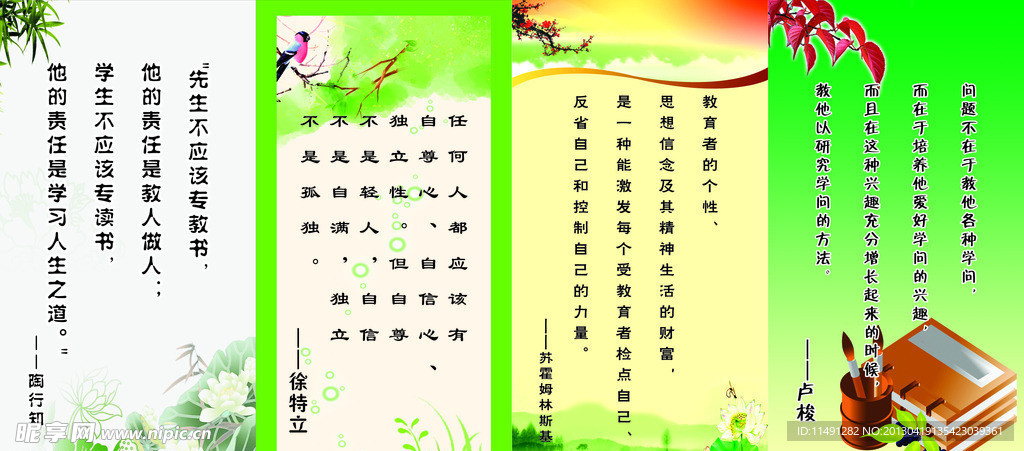 “先生不应该专教书，
他的责任是教人做人；
学生不应该专读书，
他的责任是学习人生之道。”
——陶行知
任何人都应该有
自尊心、自信心、
独立性。但自尊
不是轻人，自信
不是自满，独立
不是孤独。
——徐特立
教育者的个性、
思想信念及其精神生活的财富，
是一种能激发每个受教育者检点自己、
反省自己和控制自己的力量。
——苏霍姆林斯基
问题不在于教他各种学问，
而在于培养他爱好学问的兴趣，
而且在这种兴趣充分增长起来的时候，
教他以研究学问的方法。
——卢梭
昵享网 www.nipic.cn
ID:11491282 NO:20130419135423039361